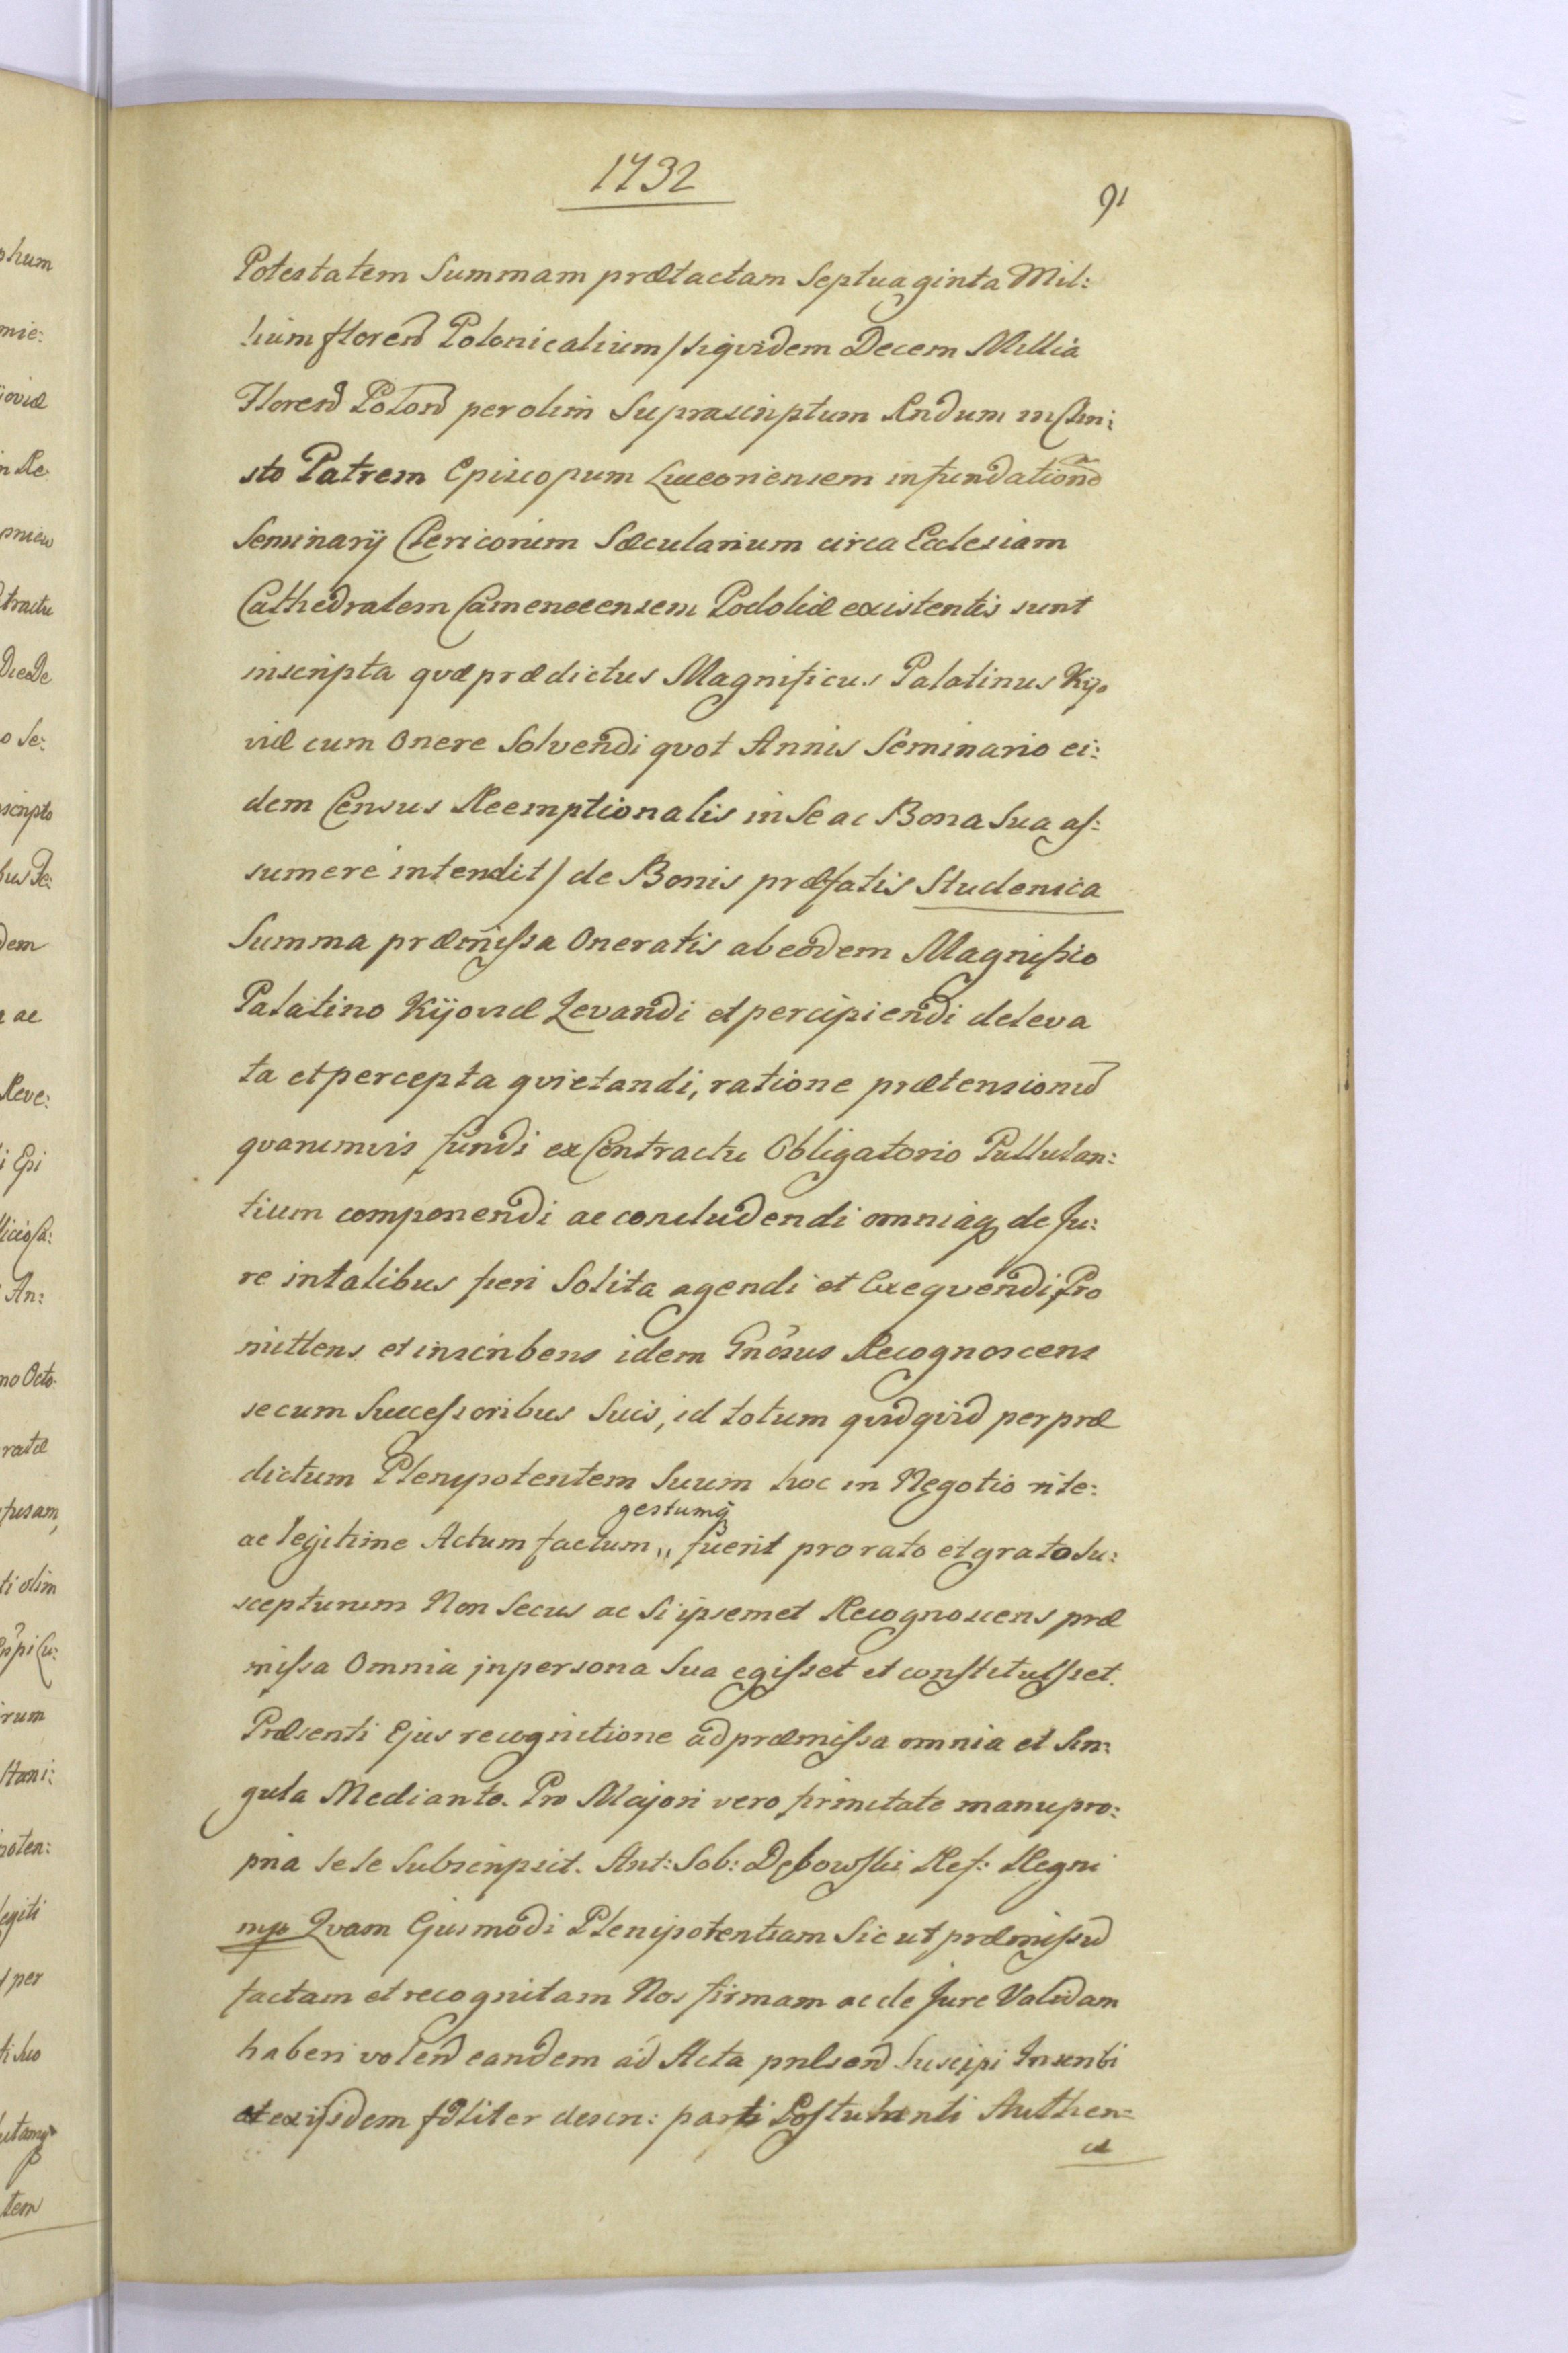 1732
91
Potestatem Summam prætactam Septuaginta Mil:
lium floren Polonicalium / siqvidem Decem Millia
Floren Polon per olim Suprascriptum Rndum in Chri:
sto Patrem Episcopum Luceoriensem in fundatione
Seminarij Clericorum Sæcularium circa Ecclesiam
Cathedralem Camenecensem Podoliæ existentis sunt
inscripta qvæ prædictus Magnificus Palatinus Kijo
viæ cum Onere Solvendi qvot Annis Seminario ei:
dem Census Reemptionalis in Se ac Bona Sua as:
sumere intendit / de Bonis præfatis Studenica
Summa præmissa Oneratis ab eodem Magnifico
Palatino Kijoviæ Levandi et percipiendi de leva
ta et percepta qvietandi, ratione prætensionu
qvarumvis fundi ex Contractu Obligatorio Pullulan:
tium componendi ac concludendi omniaq de Ju:
re in talibus fieri Solita agendi et Exeqvendi, Pro
mittens et inscribens idem Gnosus Recognoscens
se cum Successoribus Suis, id totum qvidqvid per præ
dictum Plenipotentem Suum hoc in Negotio rite:
gestumq
ac legitime Actum factum „ fuerit pro rato et grato Su:
scepturum Non Secus ac Si ipsemet Recognoscens præ
missa Omnia in persona Sua egisset et constituisset.
Præsenti Ejus recognitione ad præmissa omnia et Sin:
gula Mediante. Pro Majori vero firmitate manu pro:
pria Sese Subscripsit. Ant: Sob: Dębowski Ref: Regni
mp Qvam Ejusmodi Plenipotentiam Sic ut præmissu
factam et recognitam Nos firmam ac de Jure Validam
haberi volen eandem ad Acta pnlsen Suscipi Inscribi
et ex ijsdem fdliter descri: parti Postulanti Authen: